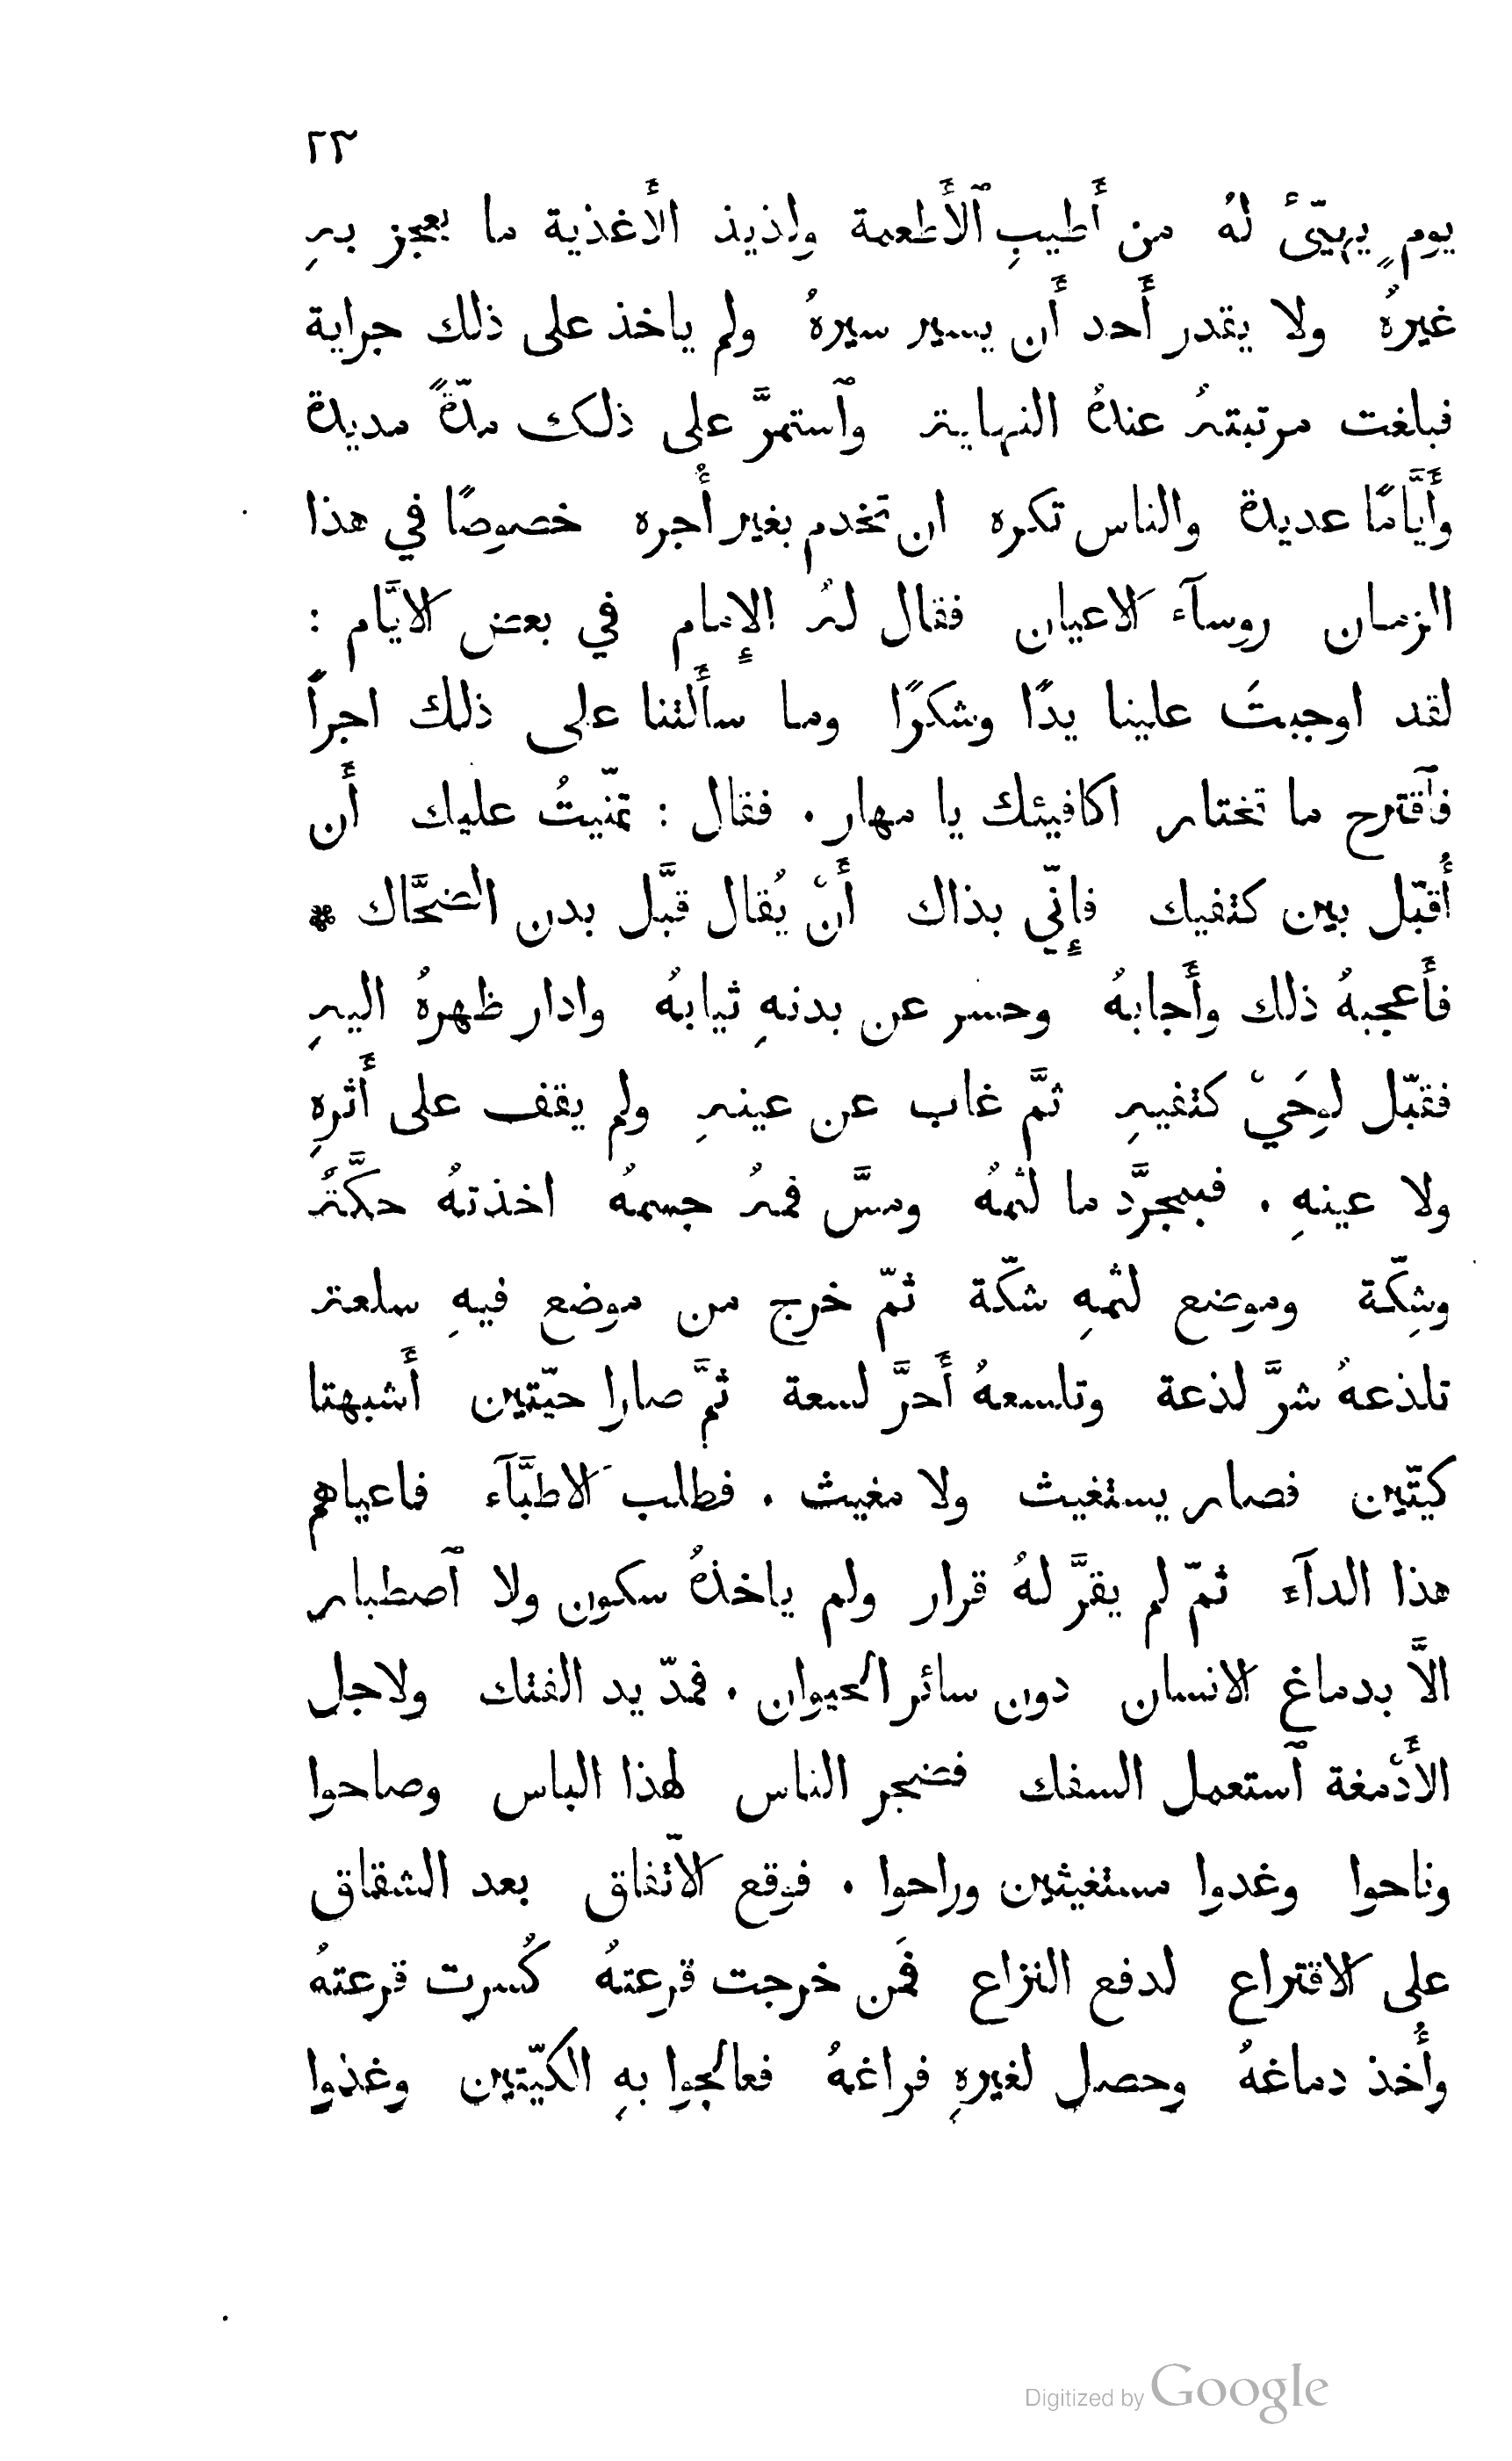 ٢٣
يومٍ يهيّئُ لهُ من أَطيبِ ٱلأَطعمة ولذيذ الأَغذية ما يعجز بهِ
غيرهُ ولا يقدر أَحد أَن يسير سيرهُ ولم ياخذ على ذلك جراية
فبلغت مرتبتهُ عندهُ النهاية وٱستمرَّ على ذلك مدّةً مديدة
وأَيَّامًا عديدة والناس تكره ان تخدم بغير أُجره خصوصًا في هذا
الزمان روسآء الاعيان فقال لهُ الإِمام في بعض الايَّام :
لقد اوجبتَ علينا يدًا وشكرًا وما سأَلتنا على ذلك اجراً
فٱقترح ما تختار اكافيئك يا مهار . فقال : تمنّيتُ عليك أَن
أُقبّل بين كتفيك فإِنّي بذاك أَنْ يُقال قبَّل بدن الضحَّاك *
فأَعجبهُ ذلك وأَجابهُ وحسر عن بدنهِ ثيابهُ وادار ظهرهُ اليهِ
فقبّل لوحَيْ كتفيهِ ثمَّ غاب عن عينهِ ولم يقف على أَثرهِ
ولا عينهِ . فبمجرَّد ما لثمهُ ومسَّ فمهُ جسمهُ اخذتهُ حكَّةُ
وشِكّة وموضع لثمهِ شكّة ثمّ خرج من موضع فيهِ سلعة
تلذعهُ شرَّ لذعة وتلسعهُ أَحرَّ لسعة ثمَّ صارا حيّتين أَشبهتا
كيّتين فصار يستغيث ولا مغيث . فطلب الاطبَّآء فاعياهم
هذا الدآء ثمّ لم يقرَّ لهُ قرار ولم ياخذهُ سكون ولا ٱصطبار
الاَّ بدماغ الانسان دون سائر الحيوان . فمدّ يد الفتك ولاجل
الأَدْمغة ٱستعمل السفك فضجر الناس لهذا الباس وصاحوا
وناحوا وغدوا مستغيثين وراحوا . فوقع الاتّفاق بعد الشقاق
على الاقتراع لدفع النزاع فمَن خرجت قرعتهُ كُسرت قرعتهُ
وأُخذ دماغهُ وحصل لغيرهِ فراغهُ فعالجوا بهِ الكيّتين وغذوا
Digitized by Google